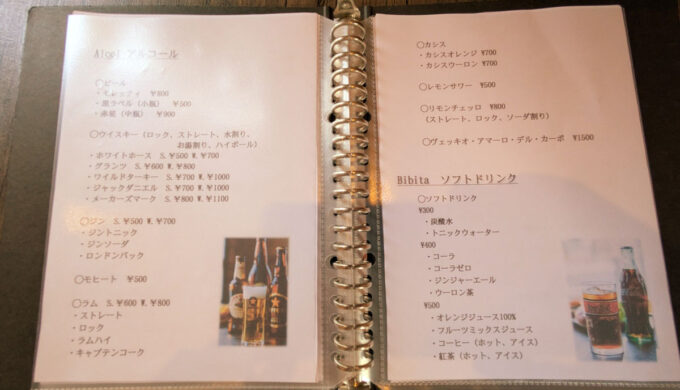 アルコール
○ビール
・モレッティ ¥800
・黒ラベル（小瓶） ¥500
・赤星（中瓶） ¥900
○ウイスキー（ロック、ストレート、水割り、
お湯割り、ハイボール）
・ホワイトホース S.¥500 W.¥700
・グランツ S.¥600 W.¥800
・ワイルドターキー S.¥700 W.¥1000
・ジャックダニエル S.¥700 W.¥1000
・メーカーズマーク S.¥800 W.¥1100
○ジン S.¥500 W.¥700
・ジントニック
・ジンソーダ
・ロンドンバック
○モヒート ¥500
○ラム S.¥600 W.¥800
・ストレート
・ロック
・ラムハイ
・キャプテンコーク
○カシス
・カシスオレンジ ¥700
・カシスウーロン ¥700
○レモンサワー ¥500
○リモンチェッロ ¥800
（ストレート、ロック、ソーダ割り）
○ヴェッキオ・アマーロ・デル・カーポ ¥1500
Bibita ソフトドリンク
○ソフトドリンク
¥300
・炭酸水
・トニックウォーター
¥400
・コーラ
・コーラゼロ
・ジンジャーエール
・ウーロン茶
¥500
・オレンジジュース100%
・フルーツミックスジュース
・コーヒー（ホット、アイス）
・紅茶（ホット、アイス）